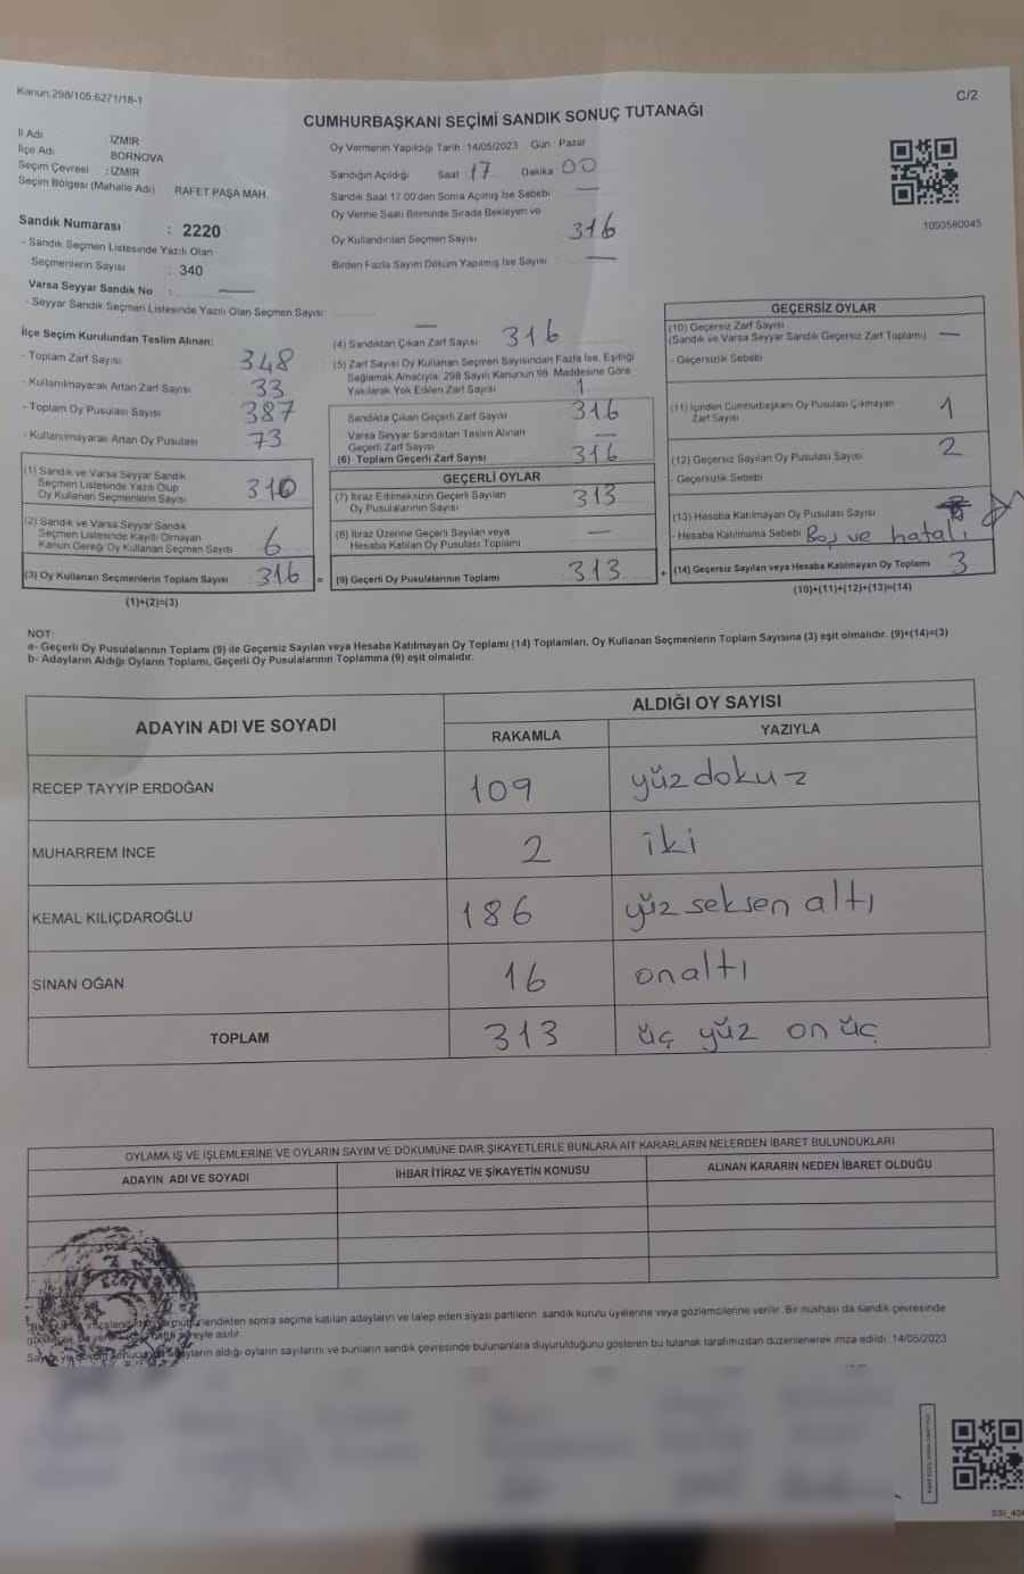 Kanun:298/105;6271/18-1
C/2
CUMHURBAŞKANI SEÇİMİ SANDIK SONUÇ TUTANAĞI
İl Adı : İZMİR
İlçe Adı : BORNOVA
Seçim Çevresi : İZMİR
Seçim Bölgesi (Mahalle Adı) RAFET PAŞA MAH.
Sandık Numarası : 2220
- Sandık Seçmen Listesinde Yazılı Olan
Seçmenlerin Sayısı : 340
Varsa Seyyar Sandık No : —
- Seyyar Sandık Seçmen Listesinde Yazılı Olan Seçmen Sayısı: —
Oy Vermenin Yapıldığı Tarih :14/05/2023 Gün : Pazar
Sandığın Açıldığı Saat 17 Dakika 00
Sandık Saat 17.00'den Sonra Açılmış İse Sebebi —
Oy Verme Saati Bitiminde Sırada Bekleyen ve
Oy Kullandırılan Seçmen Sayısı 316
Birden Fazla Sayım Döküm Yapılmış İse Sayısı —
1093580045
İlçe Seçim Kurulundan Teslim Alınan:
- Toplam Zarf Sayısı 348
- Kullanılmayarak Artan Zarf Sayısı 33
- Toplam Oy Pusulası Sayısı 387
- Kullanılmayarak Artan Oy Pusulası 73
(1) Sandık ve Varsa Seyyar Sandık
Seçmen Listesinde Yazılı Olup
Oy Kullanan Seçmenlerin Sayısı 310
(2) Sandık ve Varsa Seyyar Sandık
Seçmen Listesinde Kayıtlı Olmayan
Kanun Gereği Oy Kullanan Seçmen Sayısı 6
(3) Oy Kullanan Seçmenlerin Toplam Sayısı 316 =
(1)+(2)=(3)
(4) Sandıktan Çıkan Zarf Sayısı 316
(5) Zarf Sayısı Oy Kullanan Seçmen Sayısından Fazla İse, Eşitliği
Sağlamak Amacıyla, 298 Sayılı Kanunun 98. Maddesine Göre
Yakılarak Yok Edilen Zarf Sayısı 1
Sandıkta Çıkan Geçerli Zarf Sayısı 316
Varsa Seyyar Sandıktan Teslim Alınan
Geçerli Zarf Sayısı —
(6) Toplam Geçerli Zarf Sayısı 316
GEÇERLİ OYLAR
(7) İtiraz Edilmeksizin Geçerli Sayılan
Oy Pusulalarının Sayısı 313
(8) İtiraz Üzerine Geçerli Sayılan veya
Hesaba Katılan Oy Pusulası Toplamı —
(9) Geçerli Oy Pusulalarının Toplamı 313 +
GEÇERSİZ OYLAR
(10) Geçersiz Zarf Sayısı
(Sandık ve Varsa Seyyar Sandık Geçersiz Zarf Toplamı) —
- Geçersizlik Sebebi
(11) İçinden Cumhurbaşkanı Oy Pusulası Çıkmayan
Zarf Sayısı 1
(12) Geçersiz Sayılan Oy Pusulası Sayısı 2
- Geçersizlik Sebebi
(13) Hesaba Katılmayan Oy Pusulası Sayısı
- Hesaba Katılmama Sebebi Boş ve hatalı
(14) Geçersiz Sayılan veya Hesaba Katılmayan Oy Toplamı 3
(10)+(11)+(12)+(13)=(14)
NOT:
a- Geçerli Oy Pusulalarının Toplamı (9) ile Geçersiz Sayılan veya Hesaba Katılmayan Oy Toplamı (14) Toplamları, Oy Kullanan Seçmenlerin Toplam Sayısına (3) eşit olmalıdır. (9)+(14)=(3)
b- Adayların Aldığı Oyların Toplamı, Geçerli Oy Pusulalarının Toplamına (9) eşit olmalıdır.
ADAYIN ADI VE SOYADI
ALDIĞI OY SAYISI
RAKAMLA YAZIYLA
RECEP TAYYİP ERDOĞAN 109 yüzdokuz
MUHARREM İNCE 2 iki
KEMAL KILIÇDAROĞLU 186 yüz seksen altı
SİNAN OĞAN 16 onaltı
TOPLAM 313 üç yüz on üç
OYLAMA İŞ VE İŞLEMLERİNE VE OYLARIN SAYIM VE DÖKÜMÜNE DAİR ŞİKAYETLERLE BUNLARA AİT KARARLARIN NELERDEN İBARET BULUNDUKLARI
ADAYIN ADI VE SOYADI İHBAR İTİRAZ VE ŞİKAYETİN KONUSU ALINAN KARARIN NEDEN İBARET OLDUĞU
sonra seçime katılan adayların ve talep eden siyasi partilerin sandık kurulu üyelerine veya gözlemcilerine verilir. Bir nushası da sandık çevresinde
süreyle asılır.
aldığı oyların sayılarını ve bunların sandık çevresinde bulunanlara duyurulduğunu gösteren bu tutanak tarafımızdan düzenlenerek imza edildi. 14/05/2023